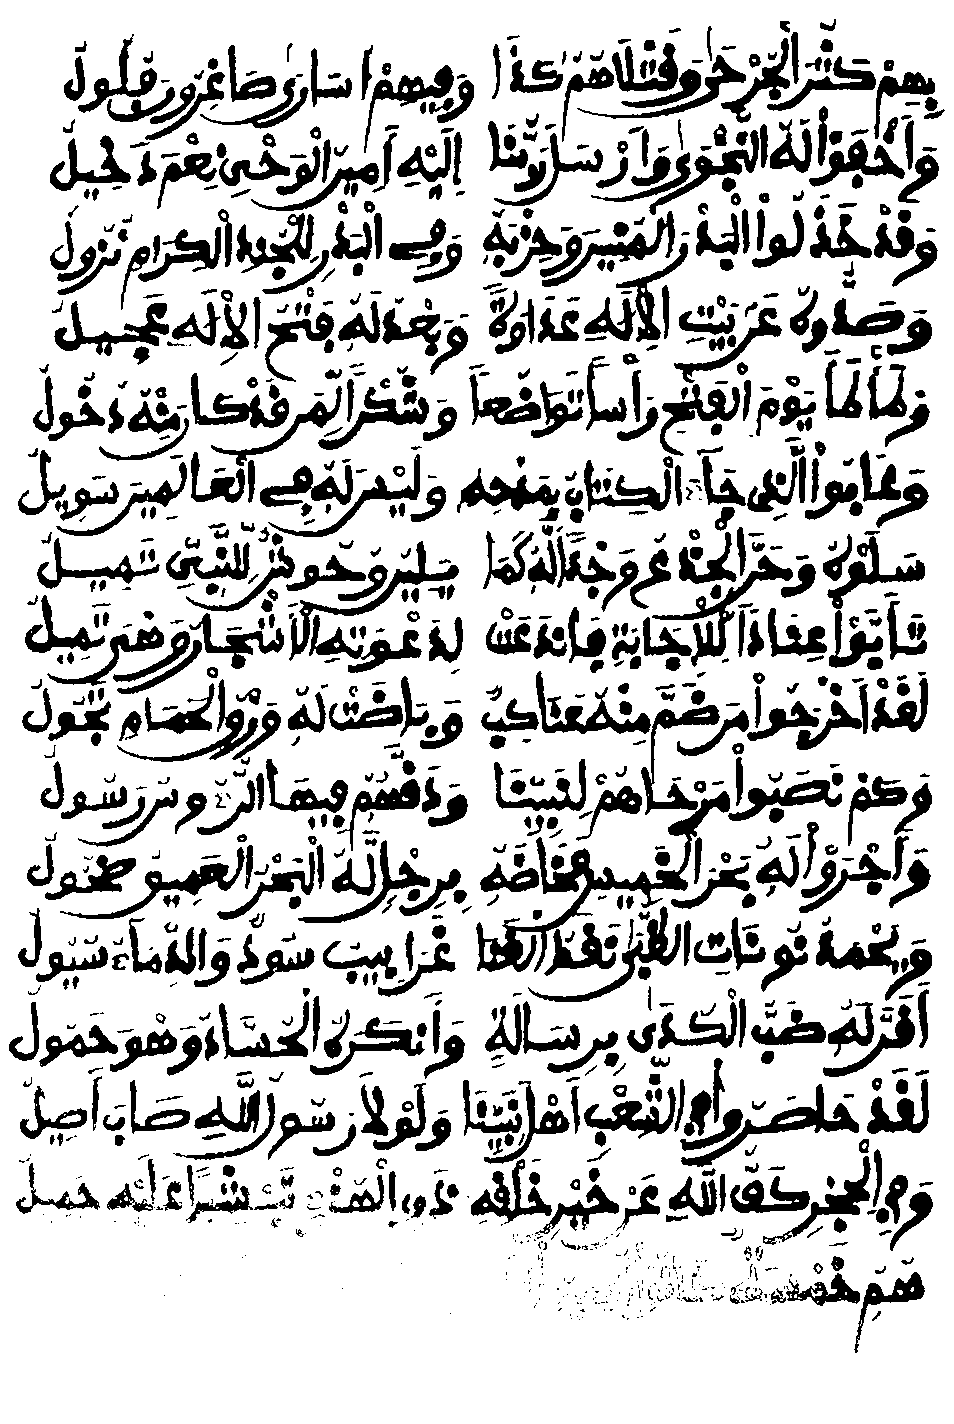 بِهِمْ كَثُرَ الْجَرْحَى وَقَتْلَاهُمْ كَذَا وَفِيهِمْ أُسَارَى صَاغِرُونَ فُلُولُ
وَأَخْفَوْا لَهُ النَّجْوَى وَأَرْسَلَ رَبُّنَا إِلَيْهِ أَمِينَ الْوَحْيِ نِعْمَ دَخِيلُ
وَقَدْ خَذَلُوا الْبَدْرَ الْمُنِيرَ وَحِزْبَهُ وَفِي الْبَدْرِ لِلْجُنْدِ الْكِرَامِ نُزُولُ
وَصَدُّوهُ عَنْ بَيْتِ الْإِلَهِ عَدَاوَةً وَبَعْدُ لَهُ فَتْحُ الْإِلَهِ عَجِيلُ
وَطَأْطَأَ يَوْمَ الْفَتْحِ رَأْساً تَوَاضُعاً وَشُكْراً لِمَنْ قَدْ كَانَ مِنْهُ دُخُولُ
وَعَابُوا الَّذِي جَاءَ الْكِتَابُ بِمَدْحِهِ وَلَيْسَ لَهُ فِي الْعَالَمِينَ سَوِيلُ
سَلَوْهُ وَحَنَّ الْجِذْعُ وَجْداً لَهُ كَمَا يَلِينُ وَحُوشٌ لِلنَّبِيِّ تَمِيلُ
تَأَبَّوْا عِنَاداً لِلْإِجَابَةِ فَانْدَعَتْ لِدَعْوَتِهِ الْأَشْجَارُ وَهْيَ تَمِيلُ
لَقَدْ أَخْرَجُوا مَنْ ضَمَّ مِنْهُ عَنَاكِبٌ وَبَاضَتْ لَهُ وُرْقُ الْحَمَامِ تَجُولُ
وَكَمْ نَصَبُوا مَرْحَاهُمْ لِنَبِيِّنَا وَدَقَّهُمْ فِيهَا الرُّءُوسَ رَسُولُ
وَأَجْرَوْا لَهُ بَحْرَ الْخَمِيسِ فَخَاضَهُ بِرِجْلٍ لَهُ الْبَحْرُ الْعَمِيقُ ضَحُولُ
نُونَاتِ الظُّبَى نَقْطُ الْقَنَا غَرَابِيبُ سُودٌ وَالدِّمَاءُ سُيُولُ
أَقَرَّ لَهُ ضَبُّ الْكُدَى بِرِسَالَةٍ وَأَنْكَرَهُ الْحُسَّادُ وَهْوَ حَمُولُ
لَقَدْ حَاصَرُوا فِي الشِّعْبِ أَهْلَ نَبِيِّنَا وَلَوْلَا رَسُولُ اللَّهِ صَابَ أَصِيلُ
وَفِي الْحِجْرِ كَفَّ اللَّهُ عَنْ خَيْرِ خَلْقِهِ ذَوِي عَلَيْهِ
هَمُّ